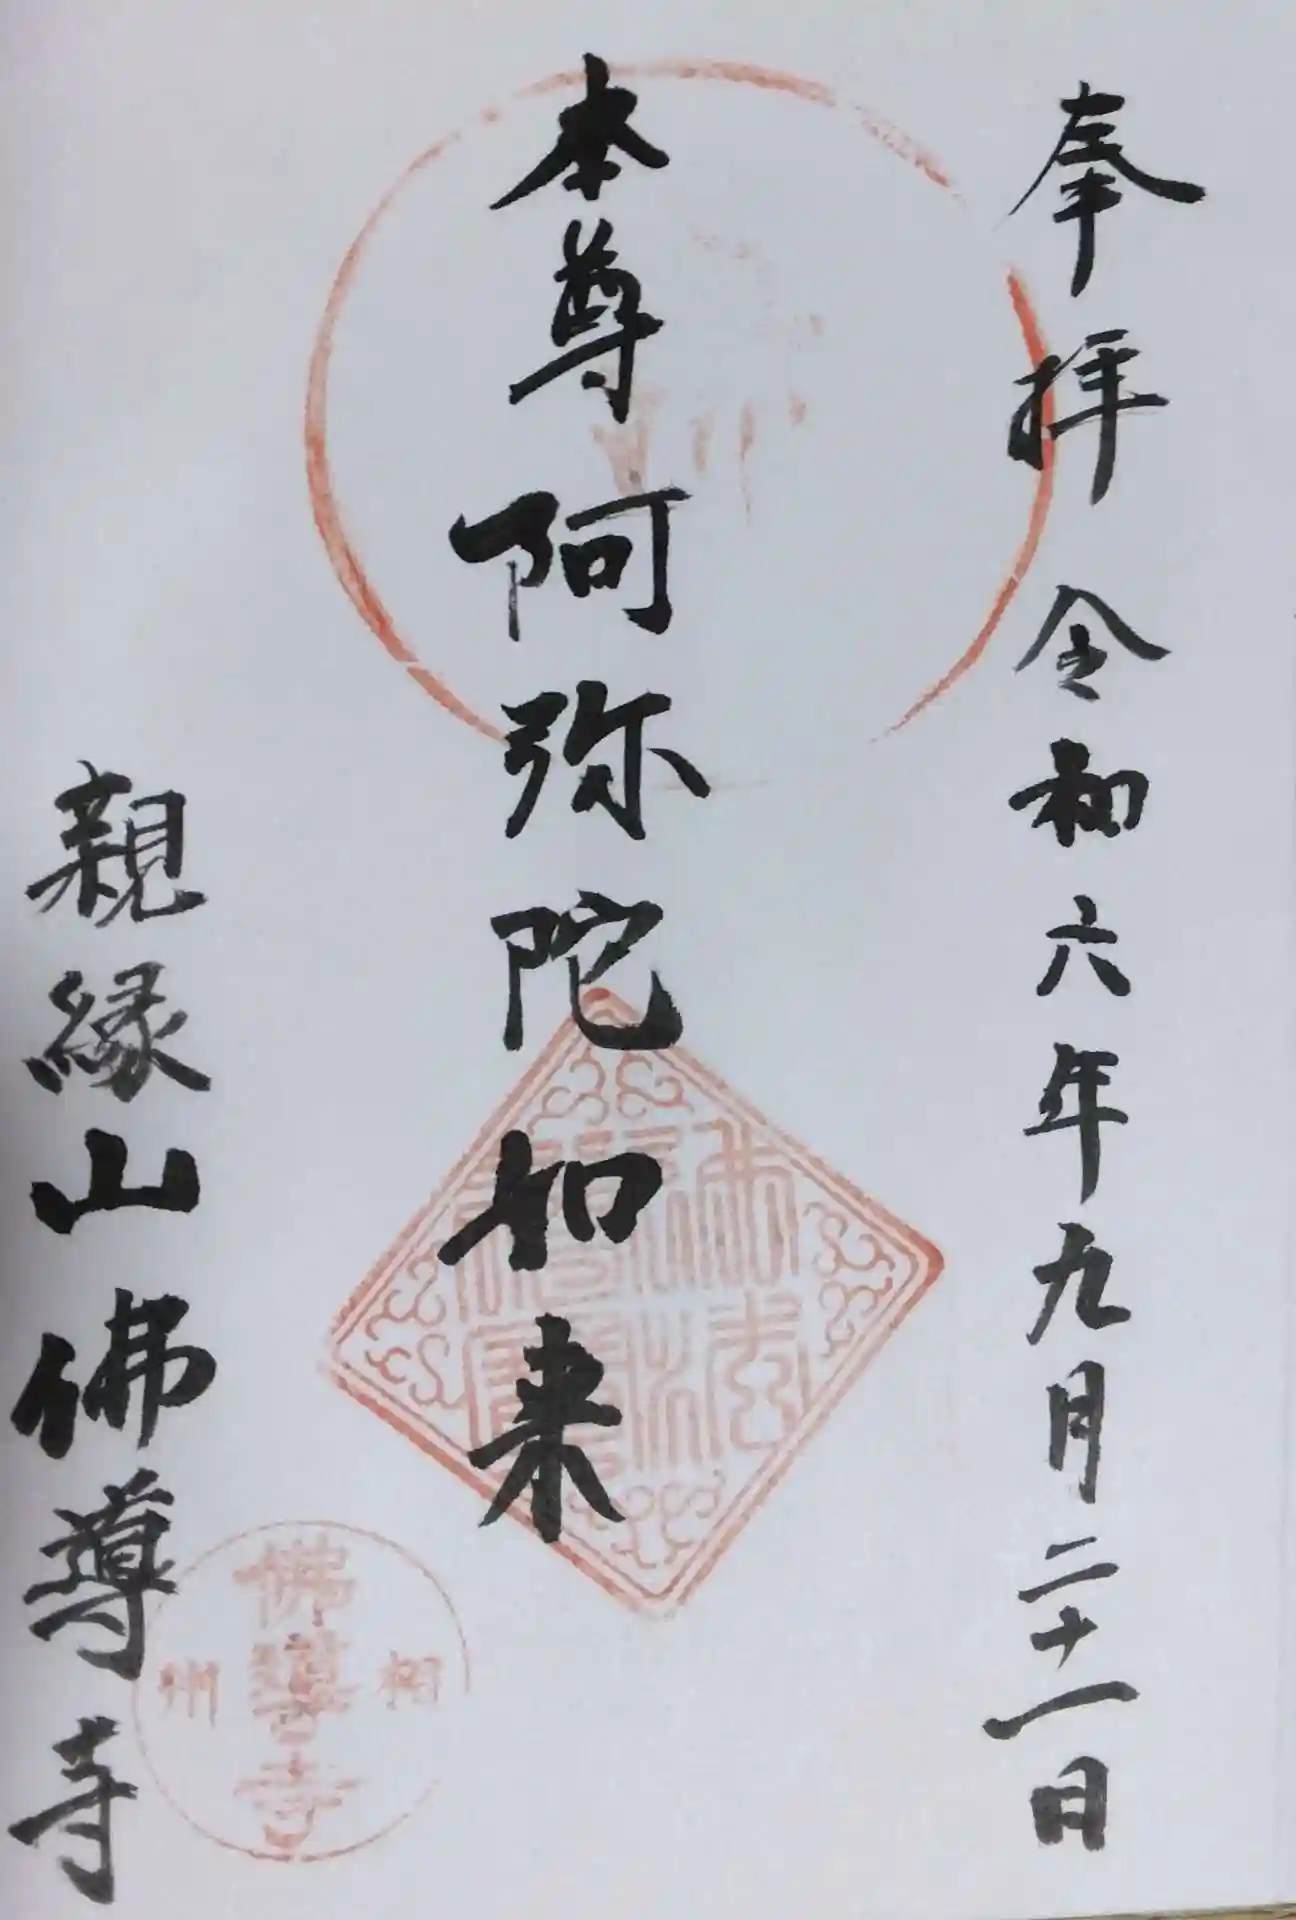 奉拝 令和六年九月二十一日
本尊 阿弥陀如来
親縁山佛導寺
佛法僧寶
相州
佛導寺